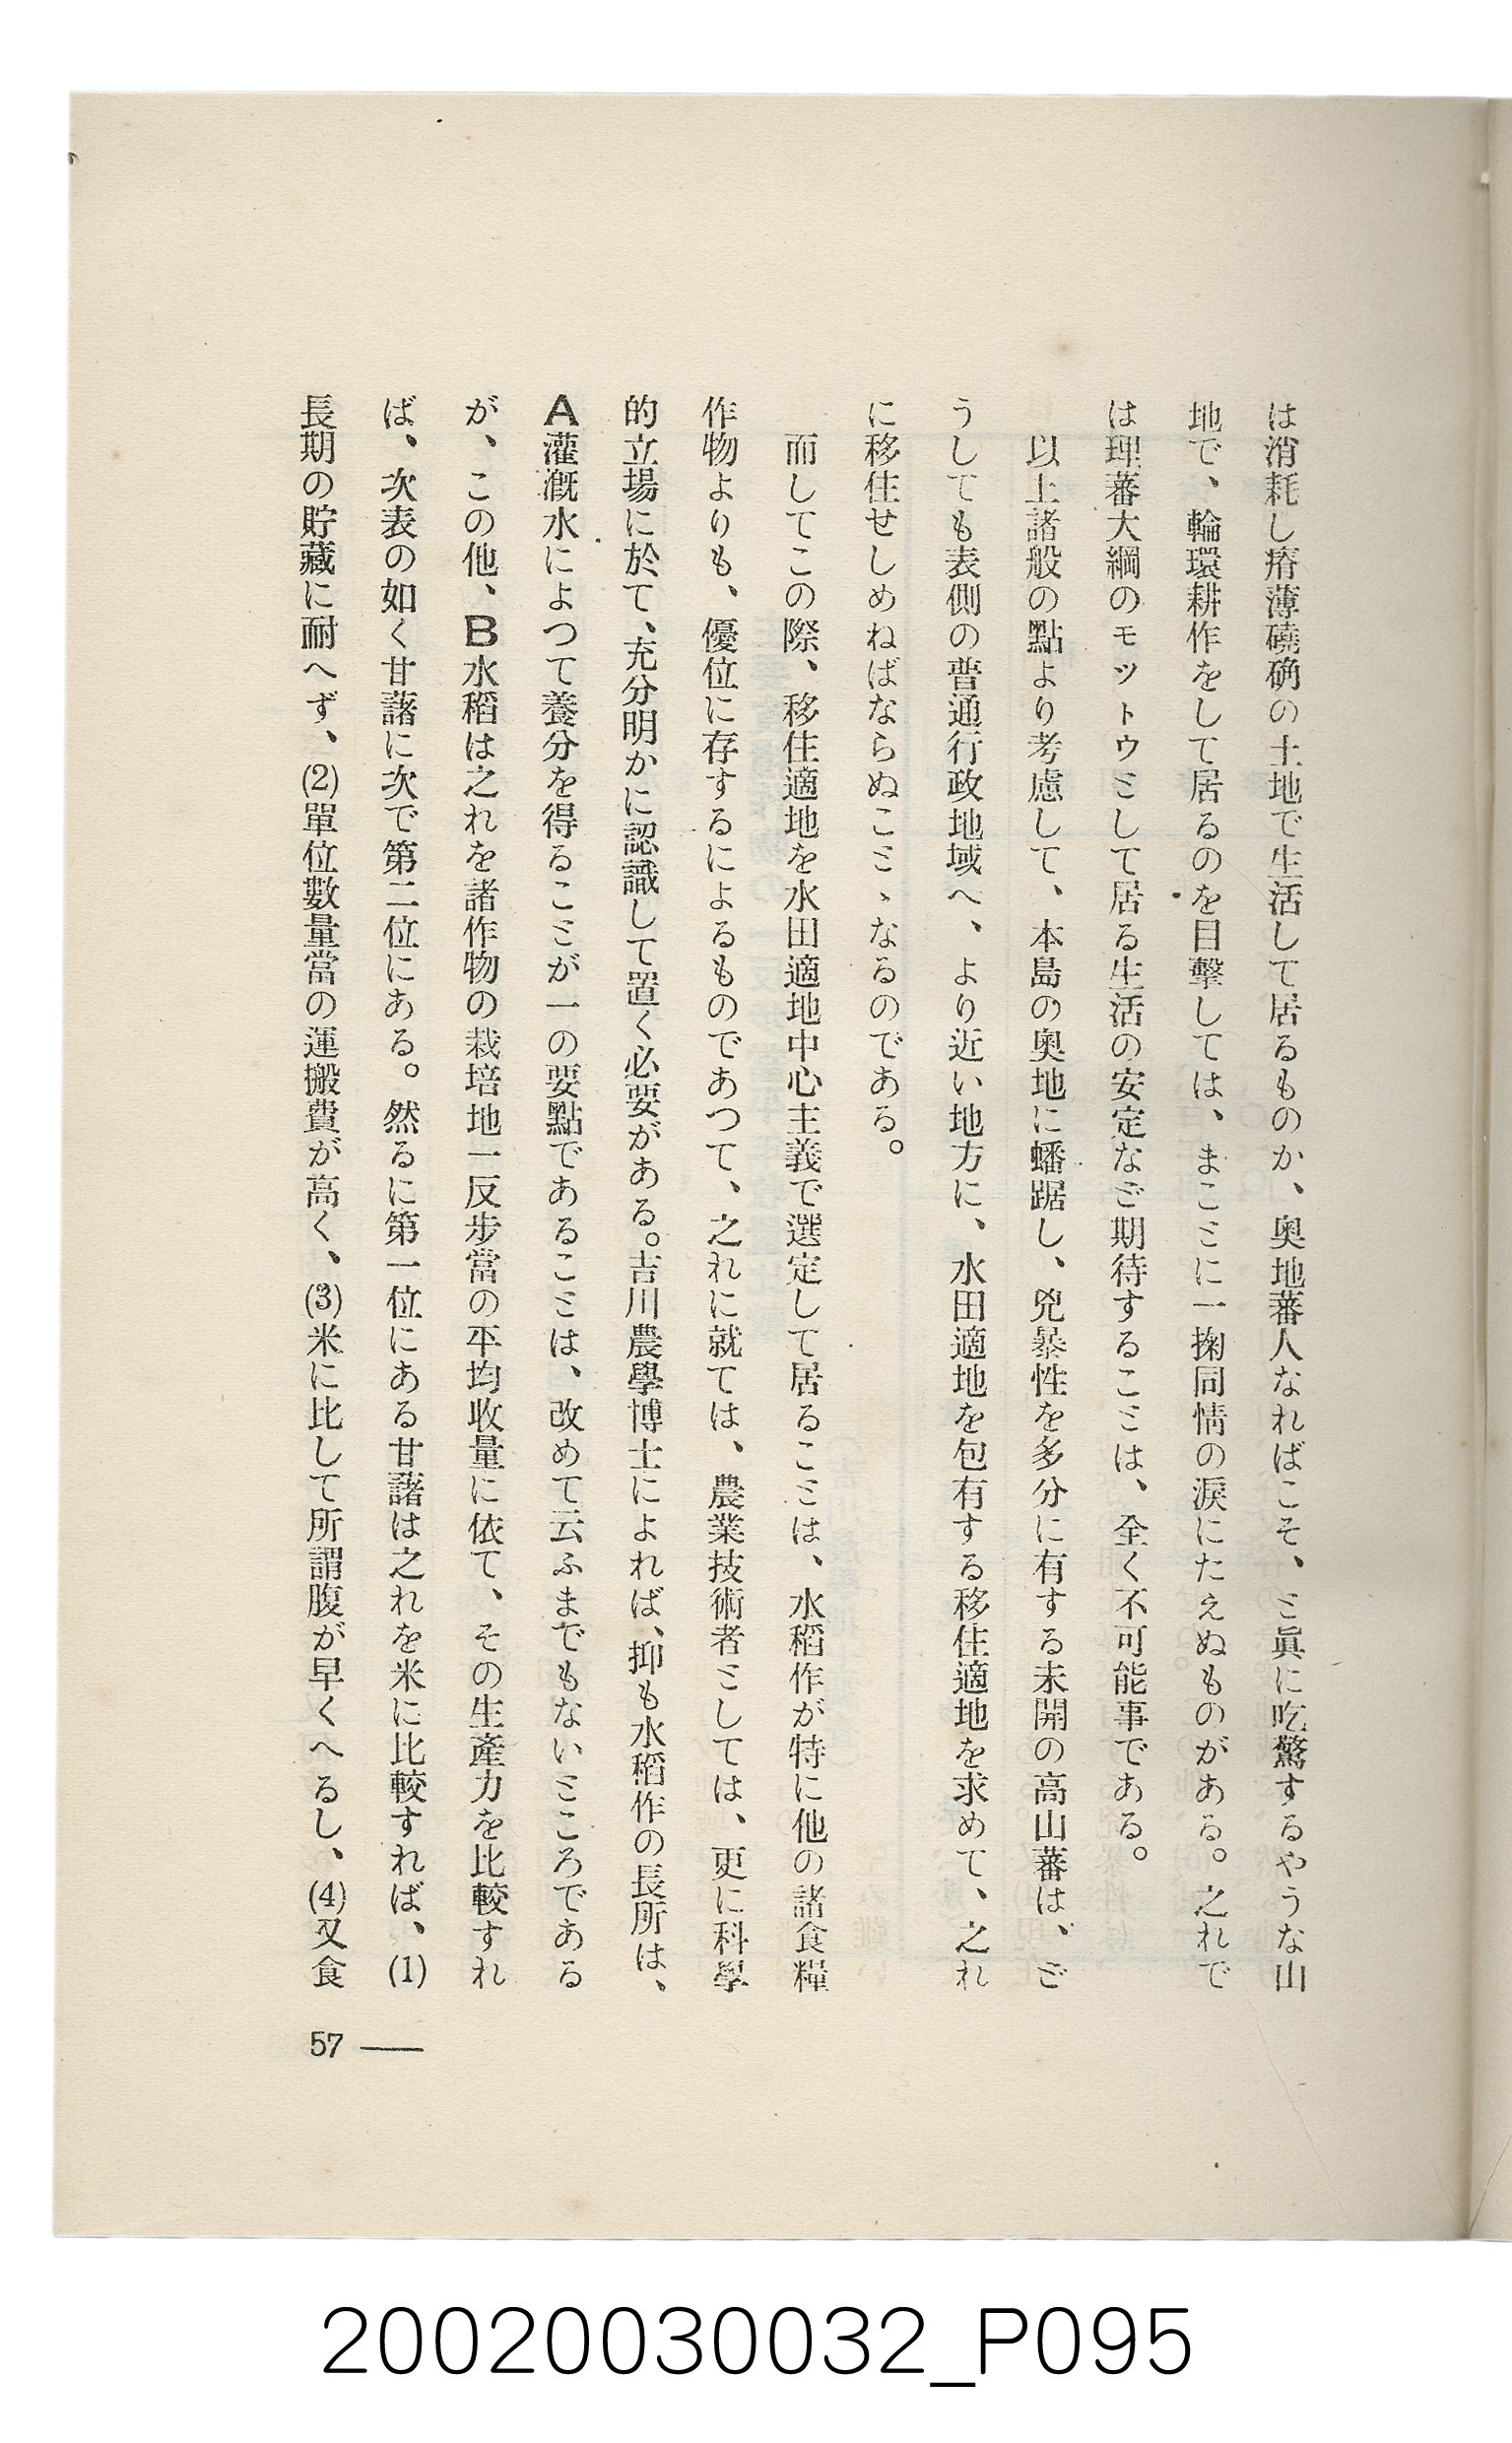 は消耗し瘠薄磽确の土地で生活して居るものか、奥地蕃人なればこそ、ミ眞に吃驚するやうな山
地で、輪環耕作をして居るのを目撃しては、まこミに一掬同情の涙にたえぬものがある。之れで
は理蕃大綱のモットウミして居る生活の安定なご期待するこミは、全く不可能事である。
以上諸般の點より考慮して、本島の奥地に蟠踞し、兇暴性を多分に有する未開の高山蕃は、ご
うしても表側の普通行政地域へ、より近い地方に、水田適地を包有する移住適地を求めて、之れ
に移住せしめねばならぬこミヽなるのである。
而してこの際、移住適地を水田適地中心主義で選定して居るこミは、水稻作が特に他の諸食糧
作物よりも、優位に存するによるものであつて、之れに就ては、農業技術者ミしては、更に科學
的立場に於て、充分明かに認識して置く必要がある。吉川農學博士によれば、抑も水稻作の長所は、
A灌漑水によつて養分を得るこミが一の要點であるこミは、改めて云ふまでもないミころである
が、この他、B水稻は之れを諸作物の栽培地一反步當の平均收量に依て、その生產力を比較すれ
ば、次表の如く甘藷に次で第二位にある。然るに第一位にある甘藷は之れを米に比較すれば、(1)
長期の貯藏に耐へず、(2)單位數量當の運搬費が高く、(3)米に比して所謂腹が早くへるし、(4)又食
57 ——
20020030032_P095